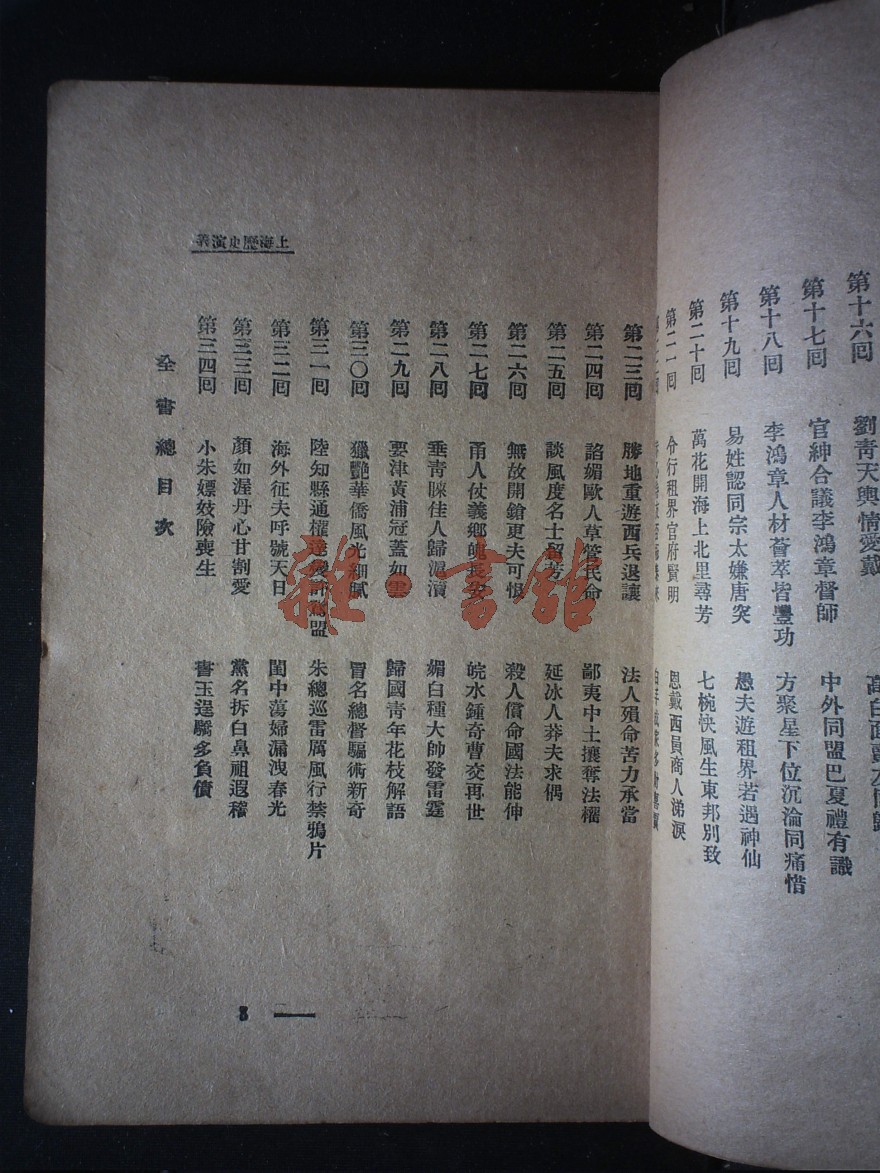 第十六回 劉青天輿情愛戴
第十七回 官紳合議李鴻章督師 中外同盟巴夏禮有識
第十八回 李鴻章人材薈萃皆豐功 方聚星下位沉淪同痛惜
第十九回 易姓認同宗太嫌唐突 愚夫遊租界若遇神仙
第二十回 萬花開海上北里尋芳 七椀快風生東邦別致
第二一回 令行租界官府賢明 恩戴西員商人涕淚
第二三回 勝地重遊西兵退讓 法人殞命苦力承當
第二四回 諂媚歐人草管民命 鄙夷中土攘奪法權
第二五回 談風度名士留芳 延冰人莽夫求偶
第二六回 無故開鎗更夫可恨 殺人償命國法能伸
第二七回 甬人仗義鄉魄長安 皖水鍾奇曹交再世
第二八回 垂青睞佳人歸滬瀆 媚白種大帥發雷霆
第二九回 要津黃浦冠蓋如雲 歸國青年花枝解語
第三〇回 獵艷華僑風光細膩 冒名總督騙術新奇
第三一回 陸知縣通權達變許鴛盟 朱總巡雷厲風行禁鴉片
第三二回 海外征夫呼號天日 閨中蕩婦漏洩春光
第三三回 顏如渥丹心甘割愛 黨名拆白鼻祖遐稽
第三四回 小朱嫖妓險喪生 書玉逞驕多負債
全書總目次
上海歷史演義
3
雜·書館